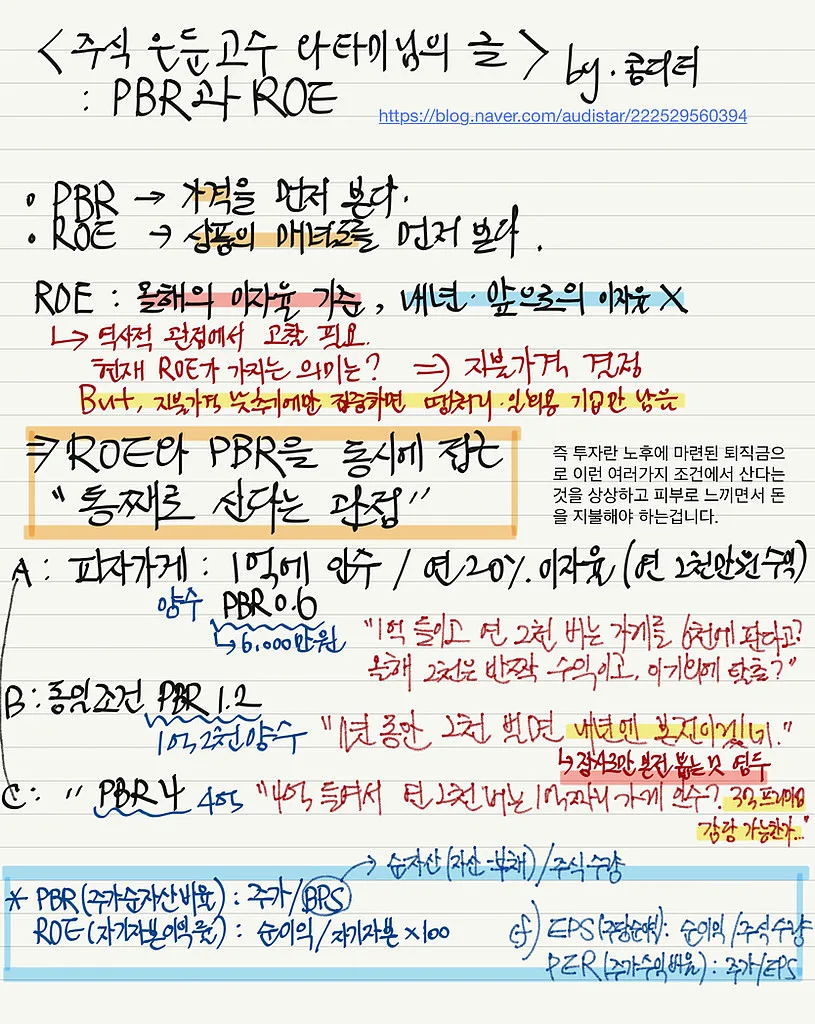 <주식 은둔고수 와타미님의 글> by. 콩디터
: PBR과 ROE
https://blog.naver.com/audistar/222529560394
• PBR → 가격을 먼저 본다.
• ROE → 상품의 매녀도를 먼저 본다.
ROE : 올해의 이자율 기준, 내년·앞으로의 이자율 X
↳ 역사적 관점에서 고찰 필요.
현재 ROE가 가지는 의미는? ⇒ 지불가격 결정
But, 지불가격 낮추기에만 집중하면 땡처리·일회용 기업만 남음
⇒ ROE와 PBR을 동시에 잡는
"통째로 산다는 관점"
즉 투자란 노후에 마련된 퇴직금으
로 이런 여러가지 조건에서 산다는
것을 상상하고 피부로 느끼면서 돈
을 지불해야 하는겁니다.
A : 피자가게 : 1억에 인수 / 연 20% 이자율 (연 2천만원 수익)
양수 PBR 0.6
↳ 6,000만원
"1억 들이고 연 2천 버는 가게를 6천에 판다고?
올해 2천은 반짝 수익이고, 이 기회에 탈출?"
B : 동일조건 PBR 1.2
1억 2천 양수
"1년 동안 2천 벌면 내년엔 본전이겠네."
↳ 장사 본전 뽑는 것 염두
C : " PBR 4 4억
"4억 들여서 연 2천 버는 1억짜리 가게 인수? 3억 프리미엄
감당 가능한가..."
→ 순자산 (자산-부채) / 주식수량
* PBR (주가순자산비율) : 주가/BPS
ROE (자기자본이익률) : 순이익/자기자본 ×100
cf) EPS (주당순이익) : 순이익/주식수량
PER (주가수익비율) : 주가/EPS